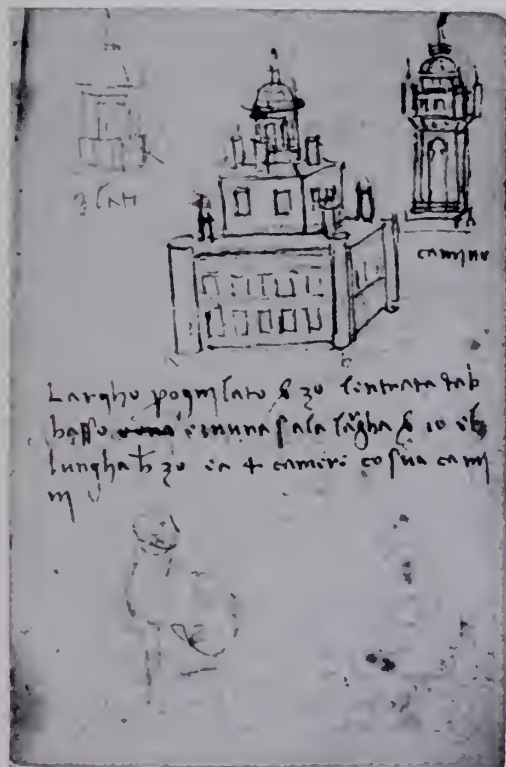 3 lati
camino
Largho pognilato b 30 lentrata dab
basso e inuna sala largha b 10 e
lungha b 30 e a 4 camiri cosua camı
nı